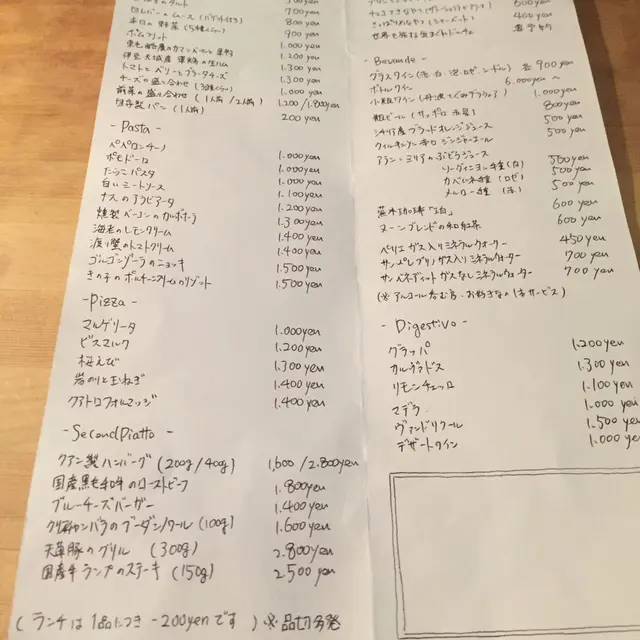 700yen
本日の野菜 (5種くらい) 800yen
ポムフリット 900yen
1.000yen
1.200yen
トマトとベリーとブラータチーズ 1.300yen
チーズの盛り合わせ (3種くらい) 1.300yen
前菜の盛り合わせ (1人前/2人前) 1.200/1.800yen
自家製パン (1人前) 200yen
- Pasta -
ペペロンチーノ 1.000yen
ポモドーロ 1.000yen
たらこパスタ 1.000yen
白いミートソース 1.100yen
ナスのアラビアータ 1.200yen
燻製ベーコンのカルボナーラ 1.300yen
海老のレモンクリーム 1.400yen
渡り蟹のトマトクリーム 1.400yen
ゴルゴンゾーラのニョッキ 1.500yen
きの子のポルチーニクリームのリゾット 1.500yen
- Pizza -
マルゲリータ 1.000yen
ビスマルク 1.200yen
桜えび 1.300yen
岩のりと玉ねぎ 1.400yen
クアトロフォルマッジ 1.400yen
- Second Piatto -
クアン製ハンバーグ (200g/400g) 1,600/2.800yen
国産黒毛和牛のローストビーフ 1.800yen
ブルーチーズバーガー 1.400yen
のブーダン/ワール (100g) 1.600yen
天草豚のグリル (300g) 2.800yen
国産牛ランプのステーキ (150g) 2.500yen
(ランチは1品につき -200yenです) ※品切多発
600yen
400yen
- Bevande -
グラスワイン 各900yen
ボトルワイン 6.000yen~
1.000yen
瓶ビール (サッポロ 赤星) 800yen
シチリア産ブラッドオレンジジュース 500yen
辛口ジンジャーエール 500yen
アラン・ミリアのぶどうジュース
500yen
カベルネ種 (ロゼ) 500yen
メルロー種 (赤) 500yen
600yen
ブレンドの和紅茶 600yen
ペリエ ガス入りミネラルウォーター 450yen
サンペレグリノ ガス入りミネラルウォーター 700yen
サンベネディット ガスなしミネラルウォーター 700yen
- Digestivo -
グラッパ 1.200yen
カルヴァドス 1.300yen
リモンチェッロ 1.100yen
マデラ 1.000yen
ヴァンドリクール 1.500yen
デザートワイン 1.000yen